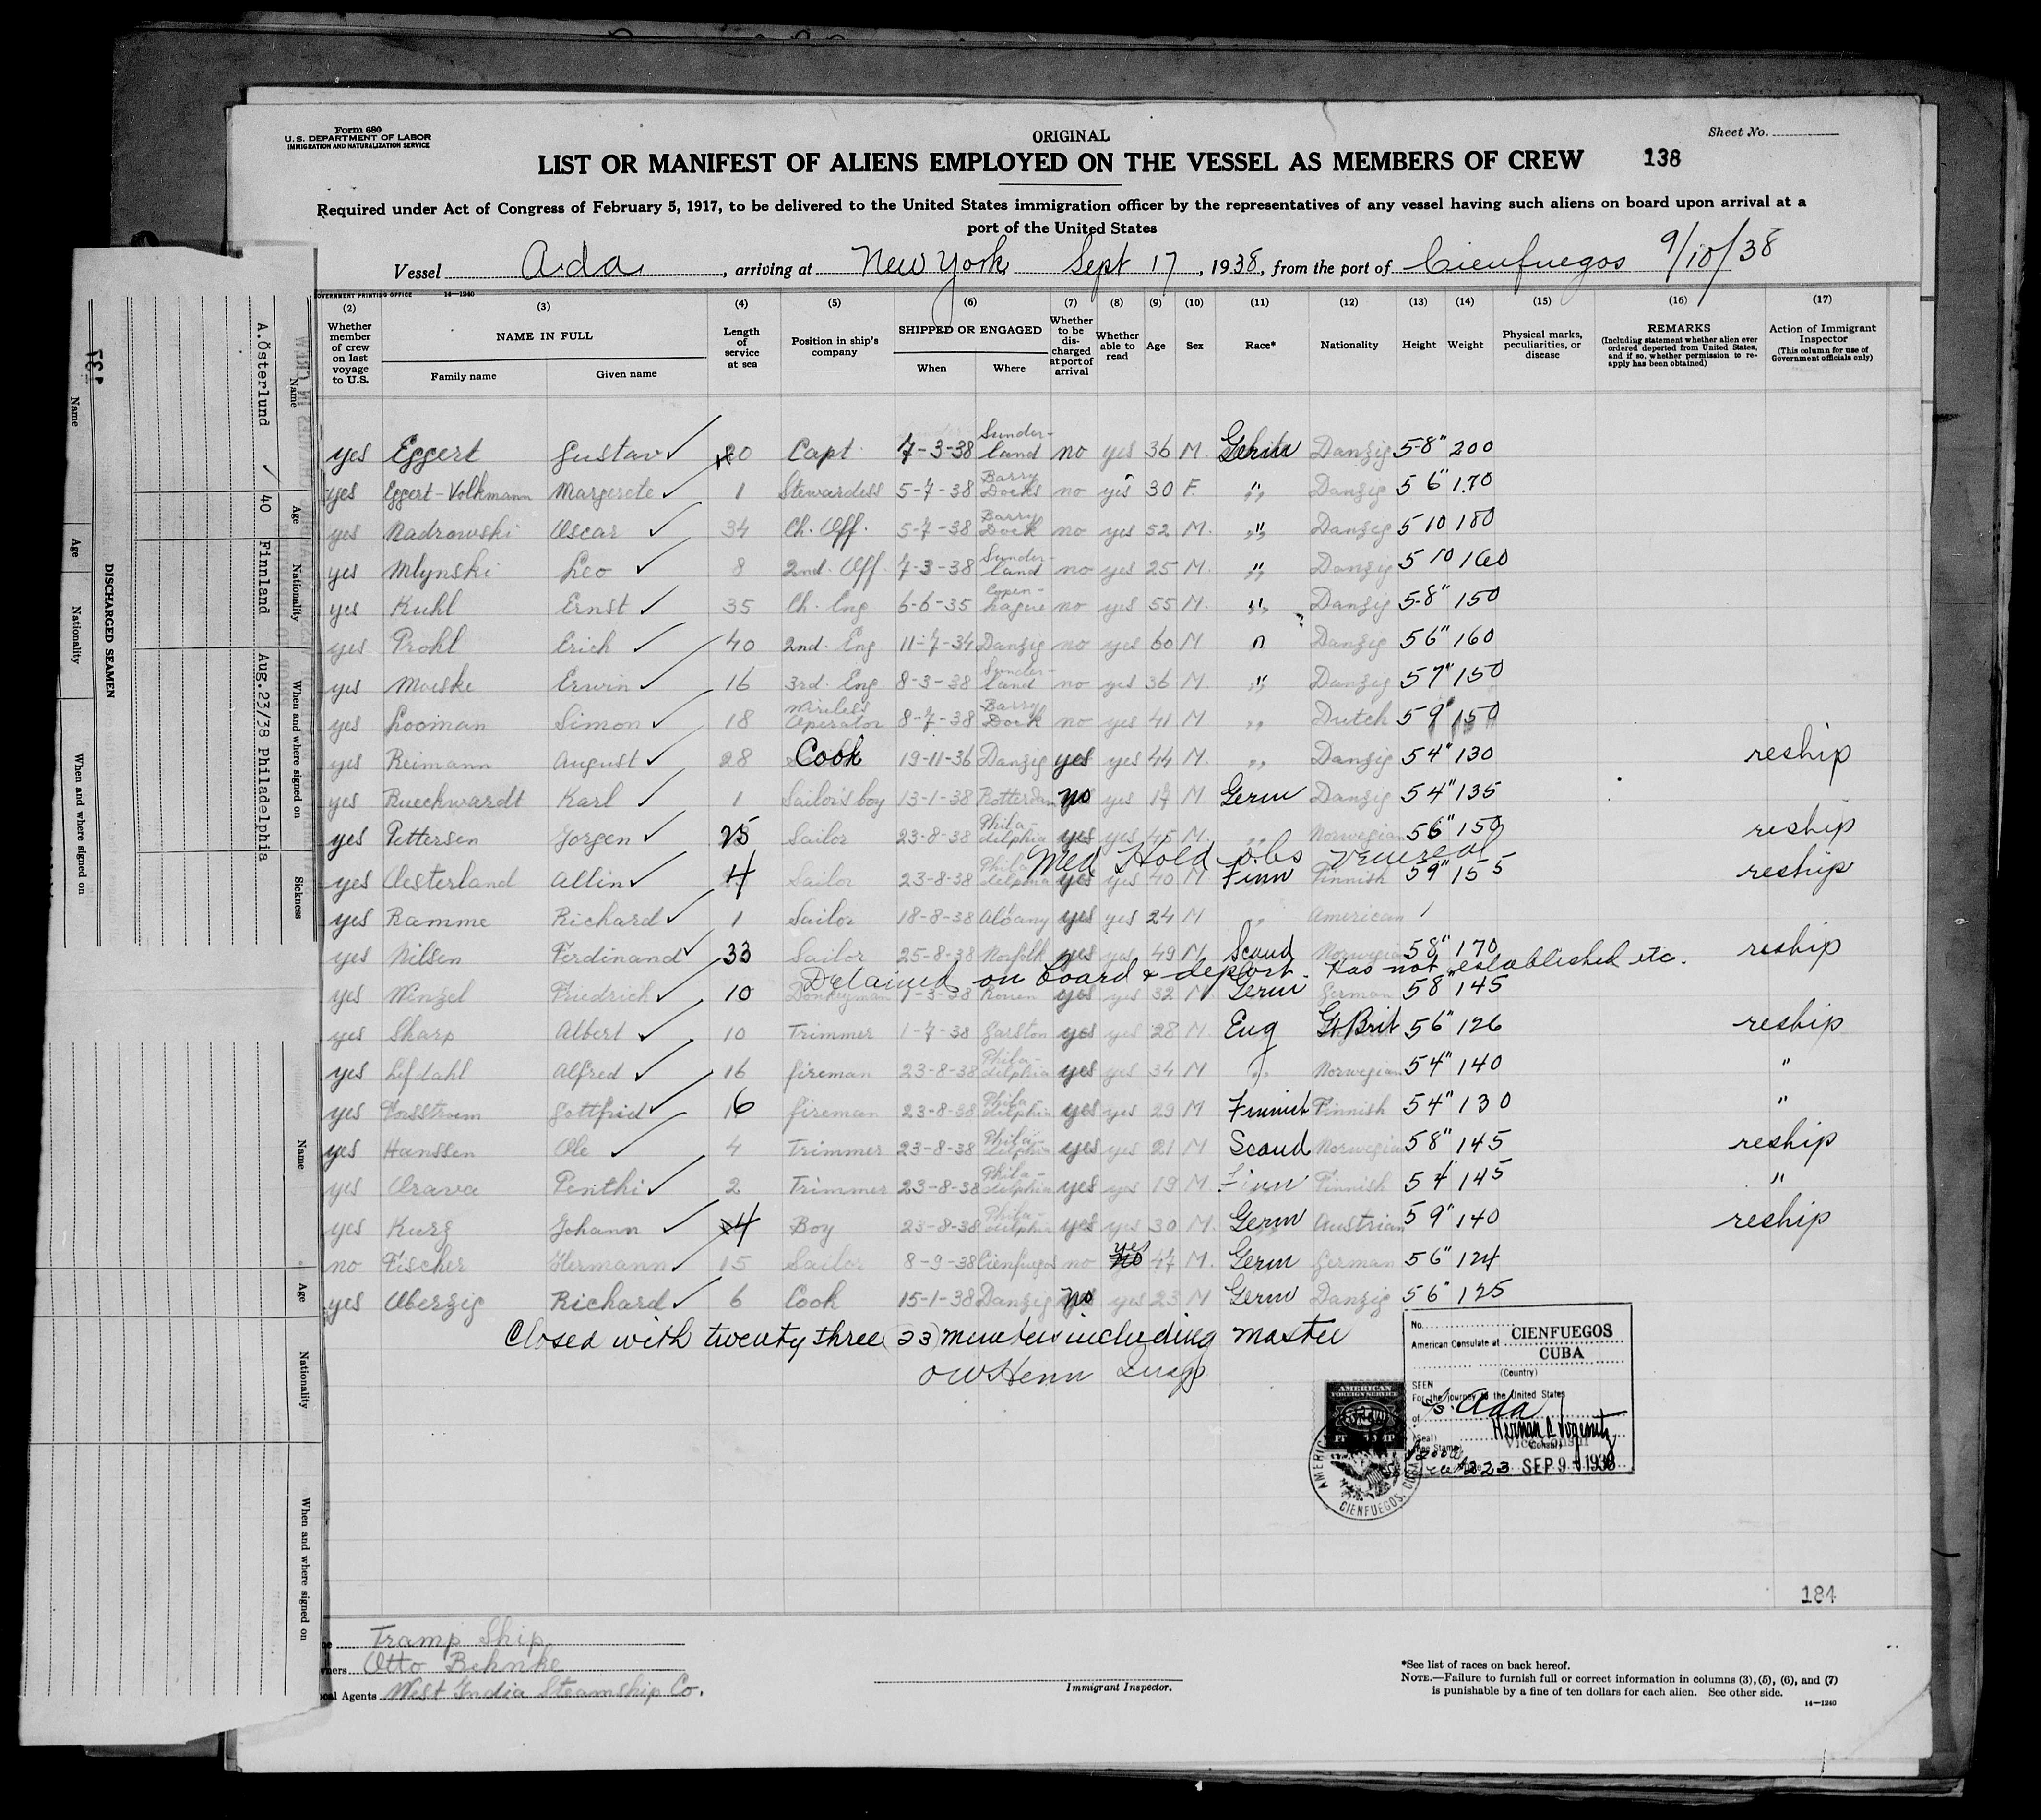 Form 680
U.S. DEPARTMENT OF LABOR
IMMIGRATION AND NATURALIZATION SERVICE
ORIGINAL
Sheet No.
LIST OR MANIFEST OF ALIENS EMPLOYED ON THE VESSEL AS MEMBERS OF CREW
138
Required under Act of Congress of February 5, 1917, to be delivered to the United States immigration officer by the representatives of any vessel having such aliens on board upon arrival at a
port of the United States
Vessel Ada, arriving at New York Sept 17, 1938, from the port of Cienfuegos 9/10/38
GOVERNMENT PRINTING OFFICE 14—1240
(2) (3) (4) (5) (6) (7) (8) (9) (10) (11) (12) (13) (14) (15) (16) (17)
Whether member of crew on last voyage to U.S.
NAME IN FULL
Family name
Given name
Length of service at sea
Position in ship's company
SHIPPED OR ENGAGED
When
Where
Whether to be discharged at port of arrival
Whether able to read
Age
Sex
Race*
Nationality
Height
Weight
Physical marks, peculiarities, or disease
REMARKS
(Including statement whether alien ever ordered deported from United States, and if so, whether permission to reapply has been obtained)
Action of Immigrant Inspector
(This column for use of Government officials only)
yes Eggert Gustav 20 Capt. 7-3-38 Sunderland no yes 36 M. Danzig 5-8" 200
yes Eggert-Volkmann Margerete 1 Stewardess 5-7-38 Barry Docks no yes 30 F. " Danzig 5 6" 170
yes Nadrowski Oscar 34 Ch. Off. 5-7-38 Barry Dock no yes 52 M. " Danzig 5 10 180
yes Mlynski Leo 8 2nd. Off. 7-3-38 Sunderland no yes 25 M. " Danzig 5 10 160
yes Kuhl Ernst 35 Ch. Eng 6-6-35 Copenhague no yes 55 M. " Danzig 5-8" 150
yes Prohl Erich 40 2nd. Eng 11-7-34 Danzig no yes 60 M " Danzig 5 6" 160
yes Moeske Erwin 16 3rd. Eng 8-3-38 Sunderland no yes 36 M. " Danzig 5 7" 150
yes Looman Simon 18 Wireless Operator 8-7-38 Barry Dock no yes 41 M " Dutch 5 9" 150
yes Reimann August 28 Cook 19-11-36 Danzig yes yes 44 M. " Danzig 5 4" 130 reship
yes Rueckwardt Karl 1 Sailor's boy 13-1-38 Rotterdam no yes 17 M Germ Danzig 5 4" 135
yes Pettersen Jorgen 25 Sailor 23-8-38 Philadelphia yes yes 45 M. " Norwegian 5 6" 150 reship
Med Hold obs venereal
yes Oesterland Allin 4 Sailor 23-8-38 Philadelphia yes yes 40 M. Finn Finnish 5 9" 155 reship
yes Ramme Richard 1 Sailor 18-8-38 Albany yes yes 24 M " American
yes Nilsen Ferdinand 33 Sailor 25-8-38 Norfolk yes yes 49 M Scand Norwegian 5 8" 170 reship
Detained on board & deport. Has not established etc.
yes Wenzel Fridrich 10 Donkeyman 1-3-38 Rouen yes yes 32 M Germ German 5 8" 145
yes Sharp Albert 10 Trimmer 1-7-38 Garston yes yes 28 M. Eng Gt. Brit 5 6" 126 reship
yes Lefdahl Alfred 16 fireman 23-8-38 Philadelphia yes yes 34 M " Norwegian 5 4" 140 "
yes Forsstroem Gottfrid 16 fireman 23-8-38 Philadelphia yes yes 29 M Finnish 5 4" 130 "
yes Hanssen Ole 4 Trimmer 23-8-38 Philadelphia yes yes 21 M Scand Norwegian 5 8" 145 reship
yes Orava Penthi 2 Trimmer 23-8-38 Philadelphia yes yes 19 M. Finn Finnish 5 4" 145 "
yes Kurz Johann 4 Boy 23-8-38 Philadelphia yes yes 30 M. Germ Austrian 5 9" 140 reship
no Fischer Hermann 15 Sailor 8-9-38 Cienfuegos no yes 47 M. Germ German 5 6" 124
yes Oberzig Richard 6 Cook 15-1-38 Danzig no yes 23 M Germ Danzig 5 6" 125
Closed with twenty three (23) members including master
OWHenn Insp
No.
American Consulate at CIENFUEGOS
CUBA
(Country)
SEEN
For the journey to the United States
of S/S. Ada
(Seal)
(Fee Stamp)
Vice Consul
SEP 9 - 1938
AMERICAN FOREIGN SERVICE
CIENFUEGOS, CUBA
184
Tramp Ship
Owners Otto Behnke
Local Agents West India Steamship Co.
Immigrant Inspector.
*See list of races on back hereof.
NOTE.—Failure to furnish full or correct information in columns (3), (5), (6), and (7)
is punishable by a fine of ten dollars for each alien. See other side.
14—1240
137
DISCHARGED SEAMEN
Name Age Nationality When and where signed on
Name Age Nationality When and where signed on Sickness
A.Österlund 40 Finnland Aug.23/38 Philadelphia
Name Age Nationality When and where signed on